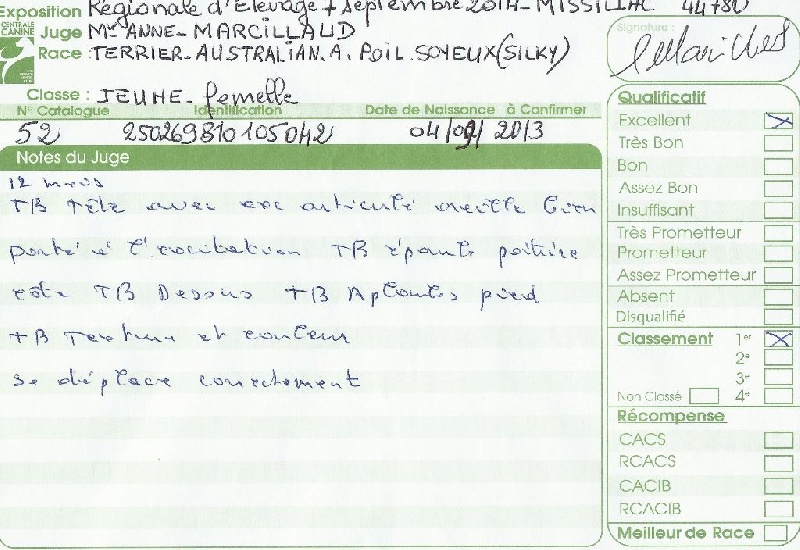 Exposition Régionale d'Elevage 7 septembre 2014 - MISSILLAC 44780
CENTRALE CANINE
Juge Me ANNE - MARCILLAUD
Race : TERRIER - AUSTRALIAN. A. POIL. SOYEUX (SILKY)
Classe : JEUNE - femelle
N° Catalogue Identification Date de Naissance à Confirmer
52 250269810105042 04/09/2013
Notes du Juge
12 mois
TB Tête avec exc articulé oreille bien
porté à l'excitation TB épaule poitrine
côte TB Dessus TB Aplombs pied
TB Texture et couleur
se déplace correctement
Signature :
Qualificatif
Excellent X
Très Bon
Bon
Assez Bon
Insuffisant
Très Prometteur
Prometteur
Assez Prometteur
Absent
Disqualifié
Classement 1er X
2e
3e
Non Classé 4e
Récompense
CACS
RCACS
CACIB
RCACIB
Meilleur de Race